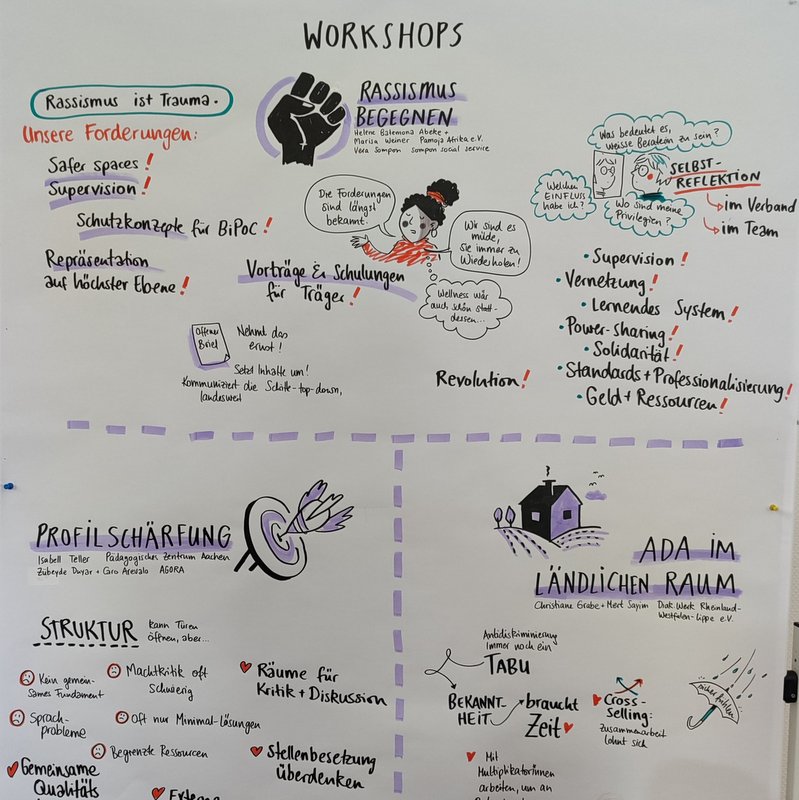 WORKSHOPS
Rassismus ist Trauma.
Unsere Forderungen:
Safer spaces!
Supervision!
Schutzkonzepte für BiPoC!
Repräsentation
auf höchster Ebene!
RASSISMUS
BEGEGNEN
Helene Batemona Abeke +
Marisa Weiner Pamoja Afrika e.V.
Vera Sompon sompon social service
Die Forderungen
sind längst
bekannt.
Wir sind es
müde,
sie immer zu
Wiederholen!
Wellness wär
auch schön statt-
dessen...
Vorträge & Schulungen
für Träger!
Offener
Brief
Nehmt das
ernst!
Setzt Inhalte um!
Kommuniziert die Schritte-top-down,
landesweit
Revolution!
Was bedeutet es,
weisse Beraterin zu sein?
Welchen
EINFLUSS
habe ich?
Wo sind meine
Privilegien?
SELBST-
REFLEKTION
im Verband
im Team
• Supervision!
• Vernetzung!
• Lernendes System!
• Power-sharing!
• Solidarität!
• Standards + Professionalisierung!
• Geld + Ressourcen!
PROFILSCHÄRFUNG
Isabell Teller Pädagogisches Zentrum Aachen
Zübeyde Duyar + Caro Arevalo AGORA
STRUKTUR
kann Türen
öffnen, aber...
Kein gemein-
sames Fundament
Machtkritik oft
Schwierig
Sprach-
probleme
Oft nur Minimal-Lösungen
Begrenzte Ressourcen
Räume für
Kritik + Diskussion
Stellenbesetzung
überdenken
Gemeinsame
Qualitäts
Externe
ADA IM
LÄNDLICHEN RAUM
Christiane Grabe + Mert Sayim Diak.Werk Rheinland-
Westfalen-Lippe e.V.
Antidiskriminierung
Immer noch ein
TABU
BEKANNT-
HEIT
braucht
Zeit
Cross-
Selling:
zusammenarbeit
lohnt sich
Mit
Multiplikatorinnen
arbeiten, um an